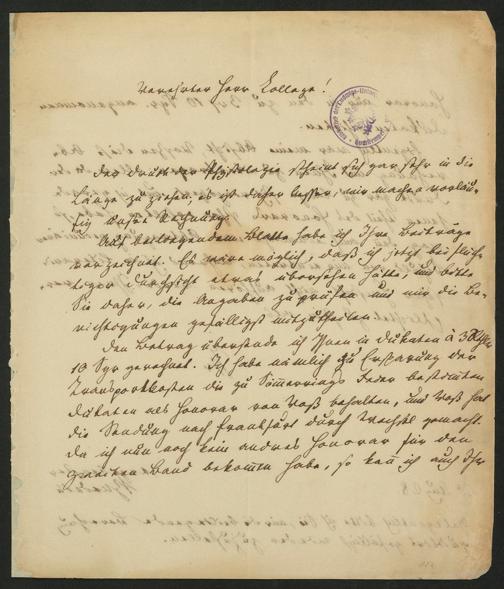 Verehrter Herr College!
Der Druck der Physiologie scheint sich gar sehr in die
Länge zu ziehen; es ist daher besser, wir machen vorläu-
fig unsre Rechnung.
Auf beiliegendem Blatte habe ich Ihre Beiträge
verzeichnet. Es wäre möglich, daß ich jetzt bei flüch-
tiger Durchsicht etwas übersehen hätte, und bitte
Sie daher, die Angaben zu prüfen und mir die Be-
richtigungen gefälligst mitzutheilen.
Den Betrag übersende ich Ihnen in Dukaten à 3 Rthlr
10 Sgr gerechnet. Ich habe nämlich zu Ersparung der
Transportkosten die zu Sömmerrings Feier bestimmten
Dukaten als Honorar von Voß behalten, und Voß hat
die Sendung nach Frankfurt durch Wechsel gemacht.
Da ich nun noch kein andres Honorar für den
zweiten Band bekommen habe, so kann ich auch Ihr